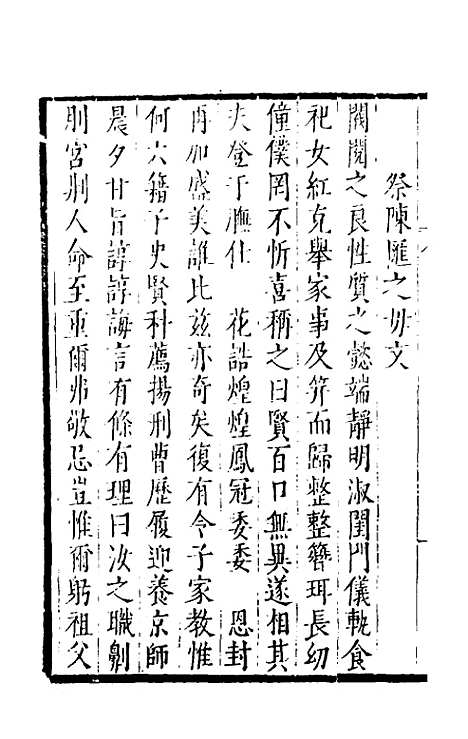 祭陳匯之母文
閥閱之良性質之懿端靜明淑閨門儀軌食
祀女紅克舉家事及笄而歸整整簪珥長幼
僮僕罔不忻喜稱之曰賢百口無異遂相其
夫登于膴仕 花誥煌煌鳳冠委委 恩封
再加盛美誰比兹亦奇矣復有令子家教惟
何六籍子史賢科薦揚刑曹歷履迎養京師
晨夕甘旨諄諄誨言有條有理曰汝之職劓
刖宫荆人命至重爾弗敬忌豈惟爾躬祖父